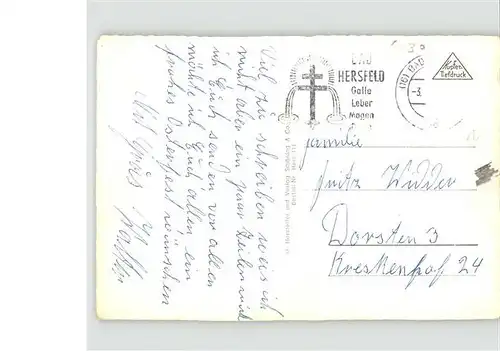 Viel zu schreiben weis ich
nicht aber ein paar Zeilen will
ich Euch senden vor allem
möchte ich Euch allen ein
frohes Osterfest wünschen
Mit Gruß
BAD
HERSFELD
Galle
Leber
Magen
(16) BAD
-3.
Kupfer
Tiefdruck
Familie
Fritz Widder
Dorsten 3
Kreskenhof 24